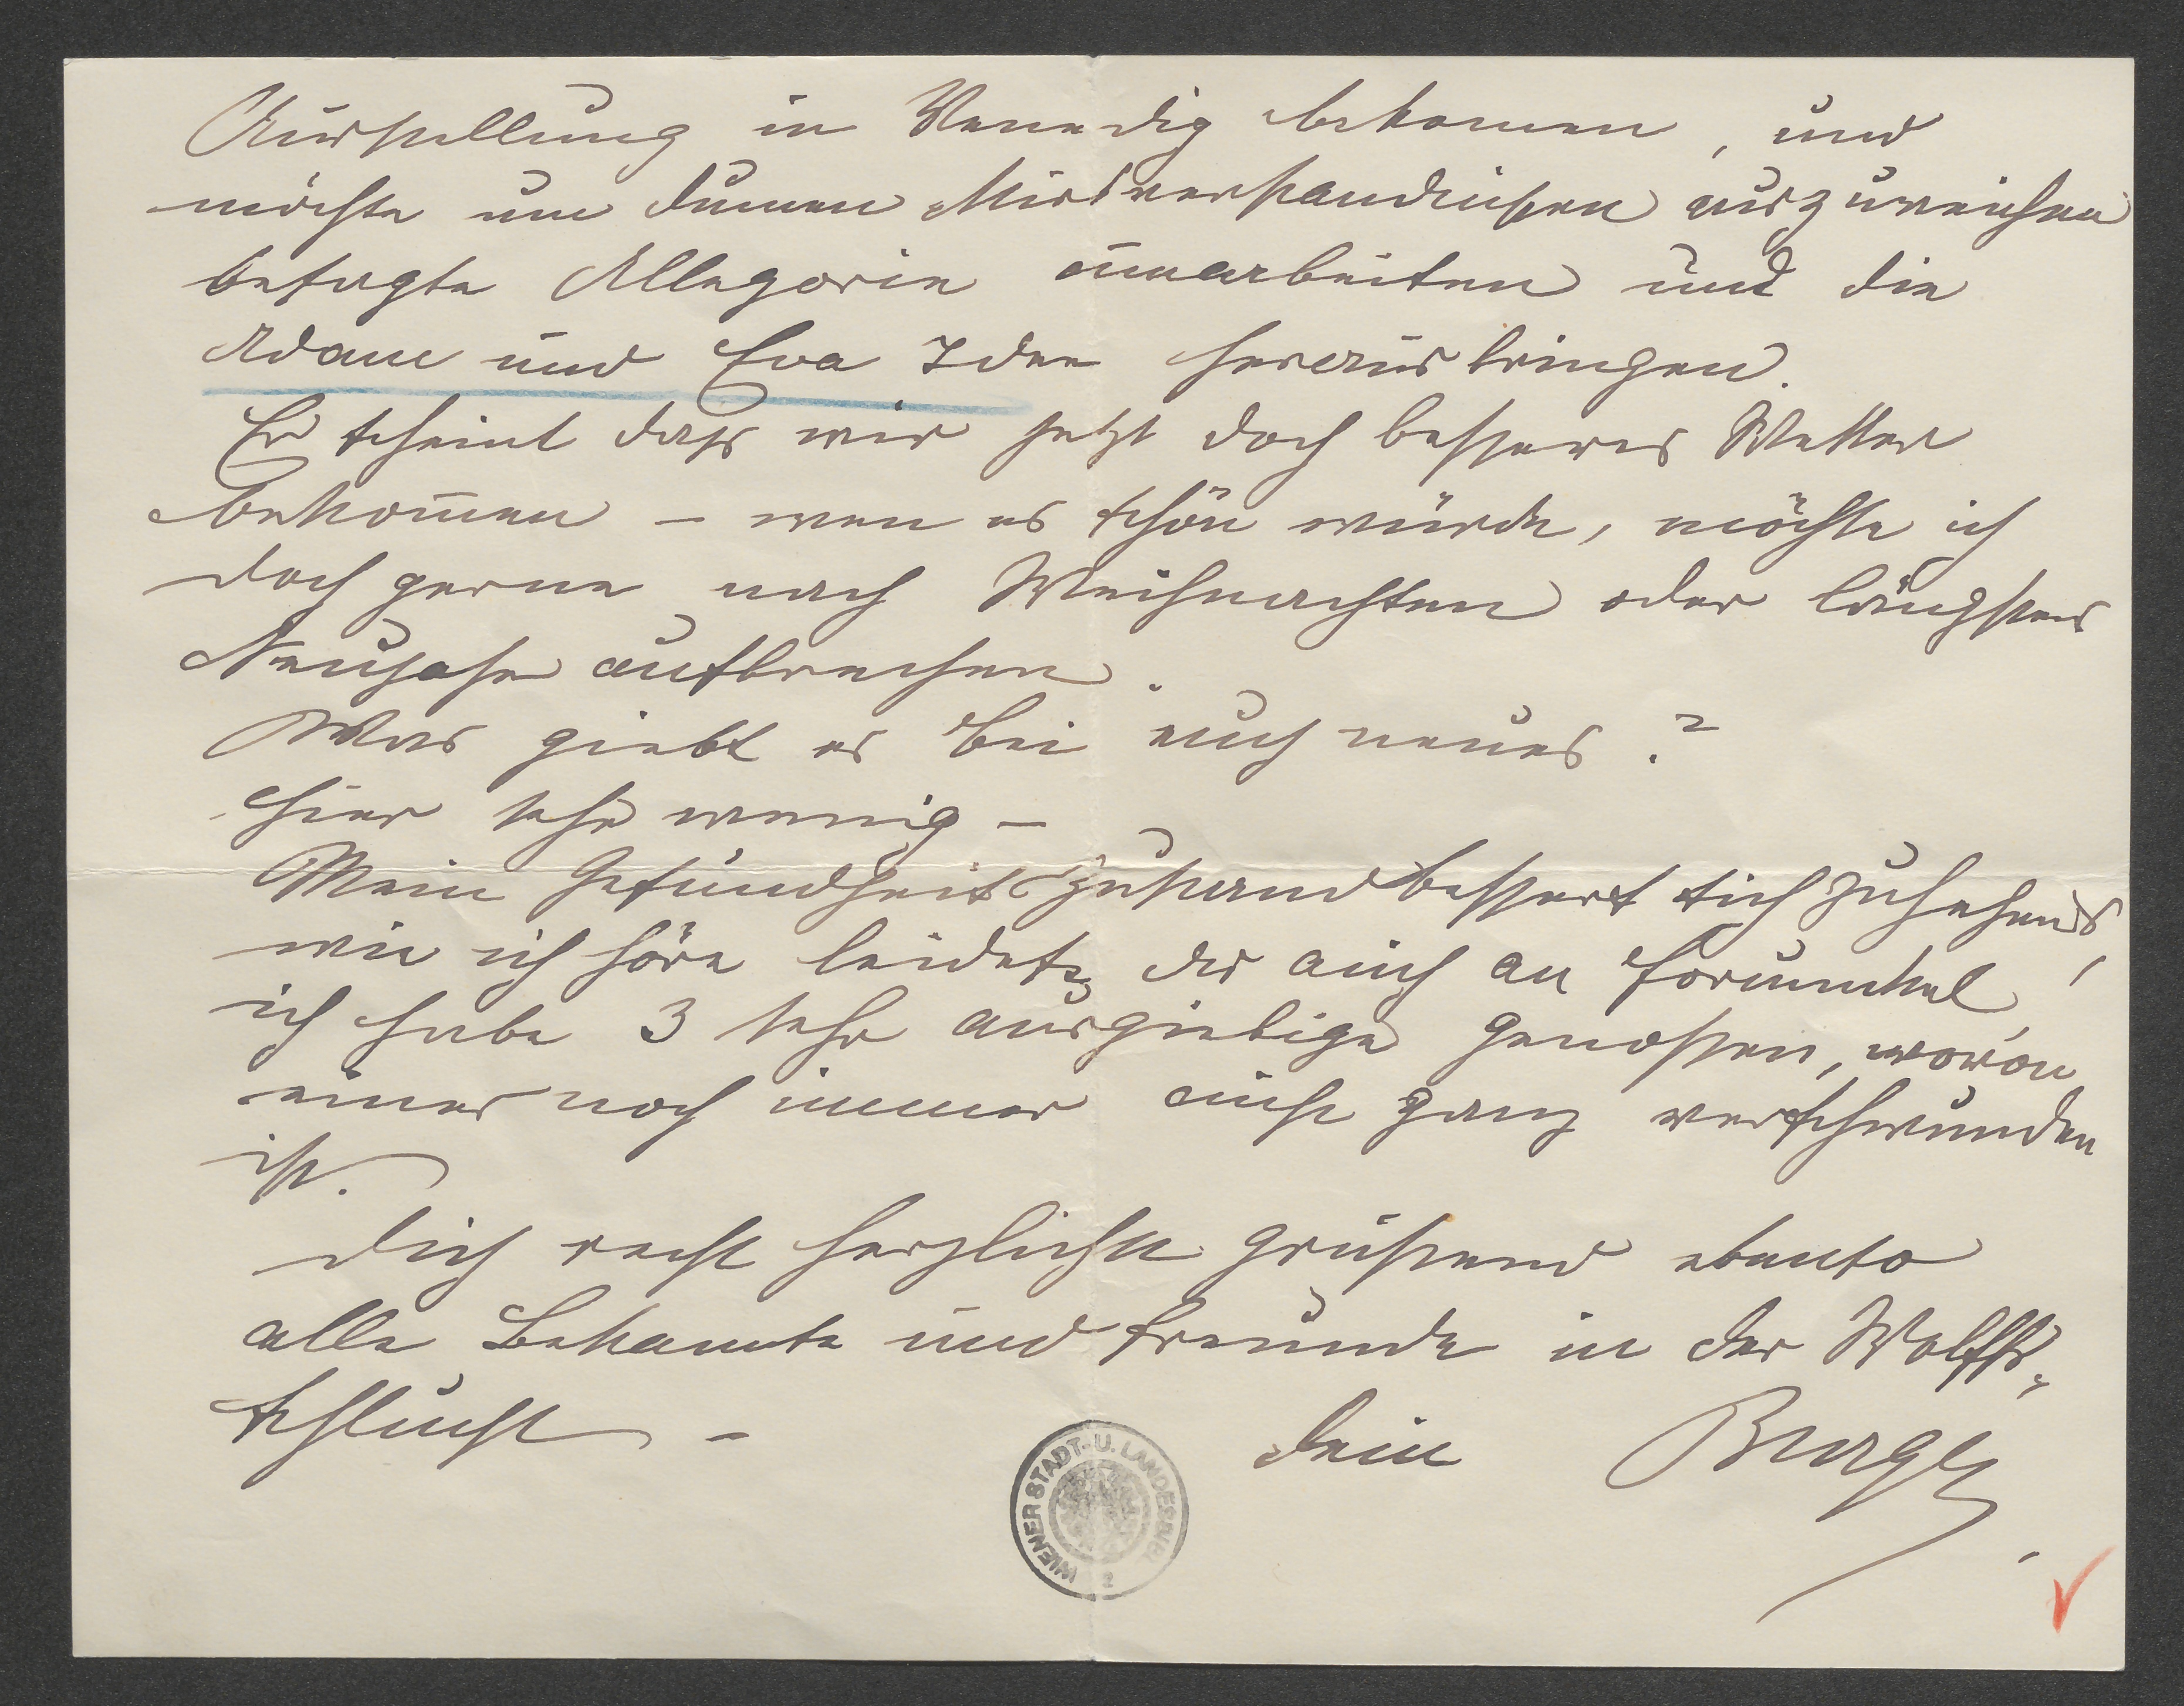 Ausstellung in Venedig bekomen, und
möchte um dumen Missverstandnissen auszuweichen
besagte Allegorie umarbeiten und die
Adam und Eva Idee herausbringen.
Es scheint dass wir jetzt doch besseres Wetter
bekom̄en – wen es schön würde, möchte ich
doch gerne nach Weihnachten oder längstens
Neujahr aufbrechen.
Was giebt es bei euch neues?
Hier sehr wenig –
Mein Gesundheitszustand bessert sich zusehends,
wie ich höre leidetest du auch an Forunkel,
ich habe 3 sehr ausgiebige genossen, wovon
einer noch immer nicht ganz verschwunden
ist.
Dich recht herzlichst grüssend ebenso
alle Bekannte und Freunde in der Wolffs-
schlucht –
Dein
WIENER STADT- U. LANDESBIBL